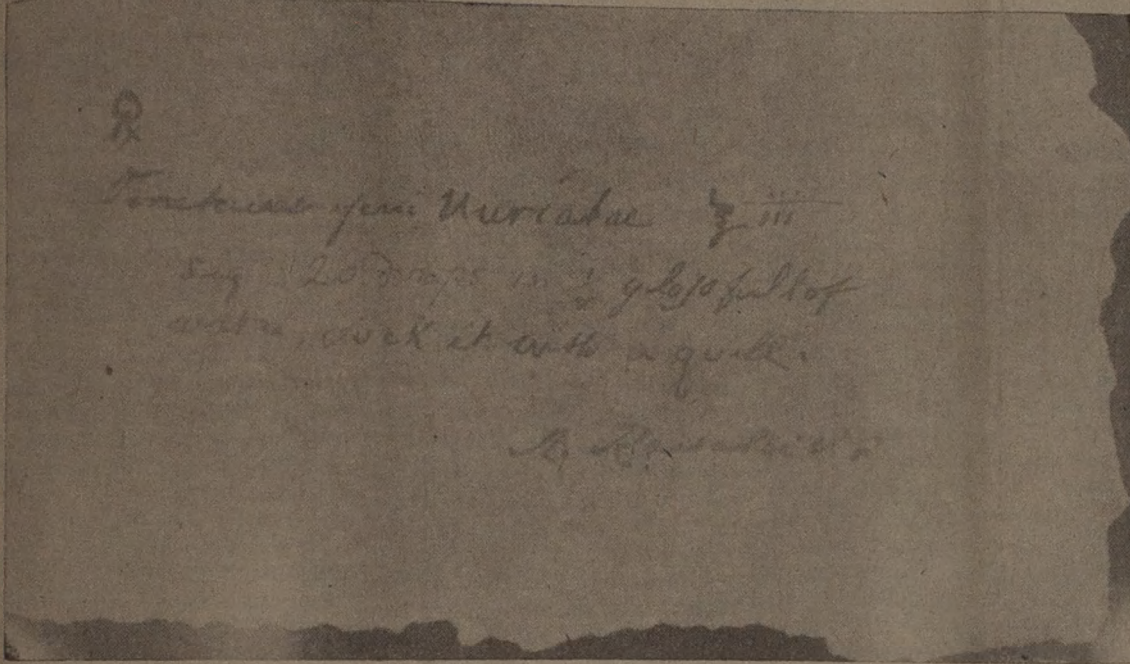 ℞
Tincturae ferri Muriatae ℥ iii
Sig 20 drops in ½ glassful of
water, suck it with a quill.